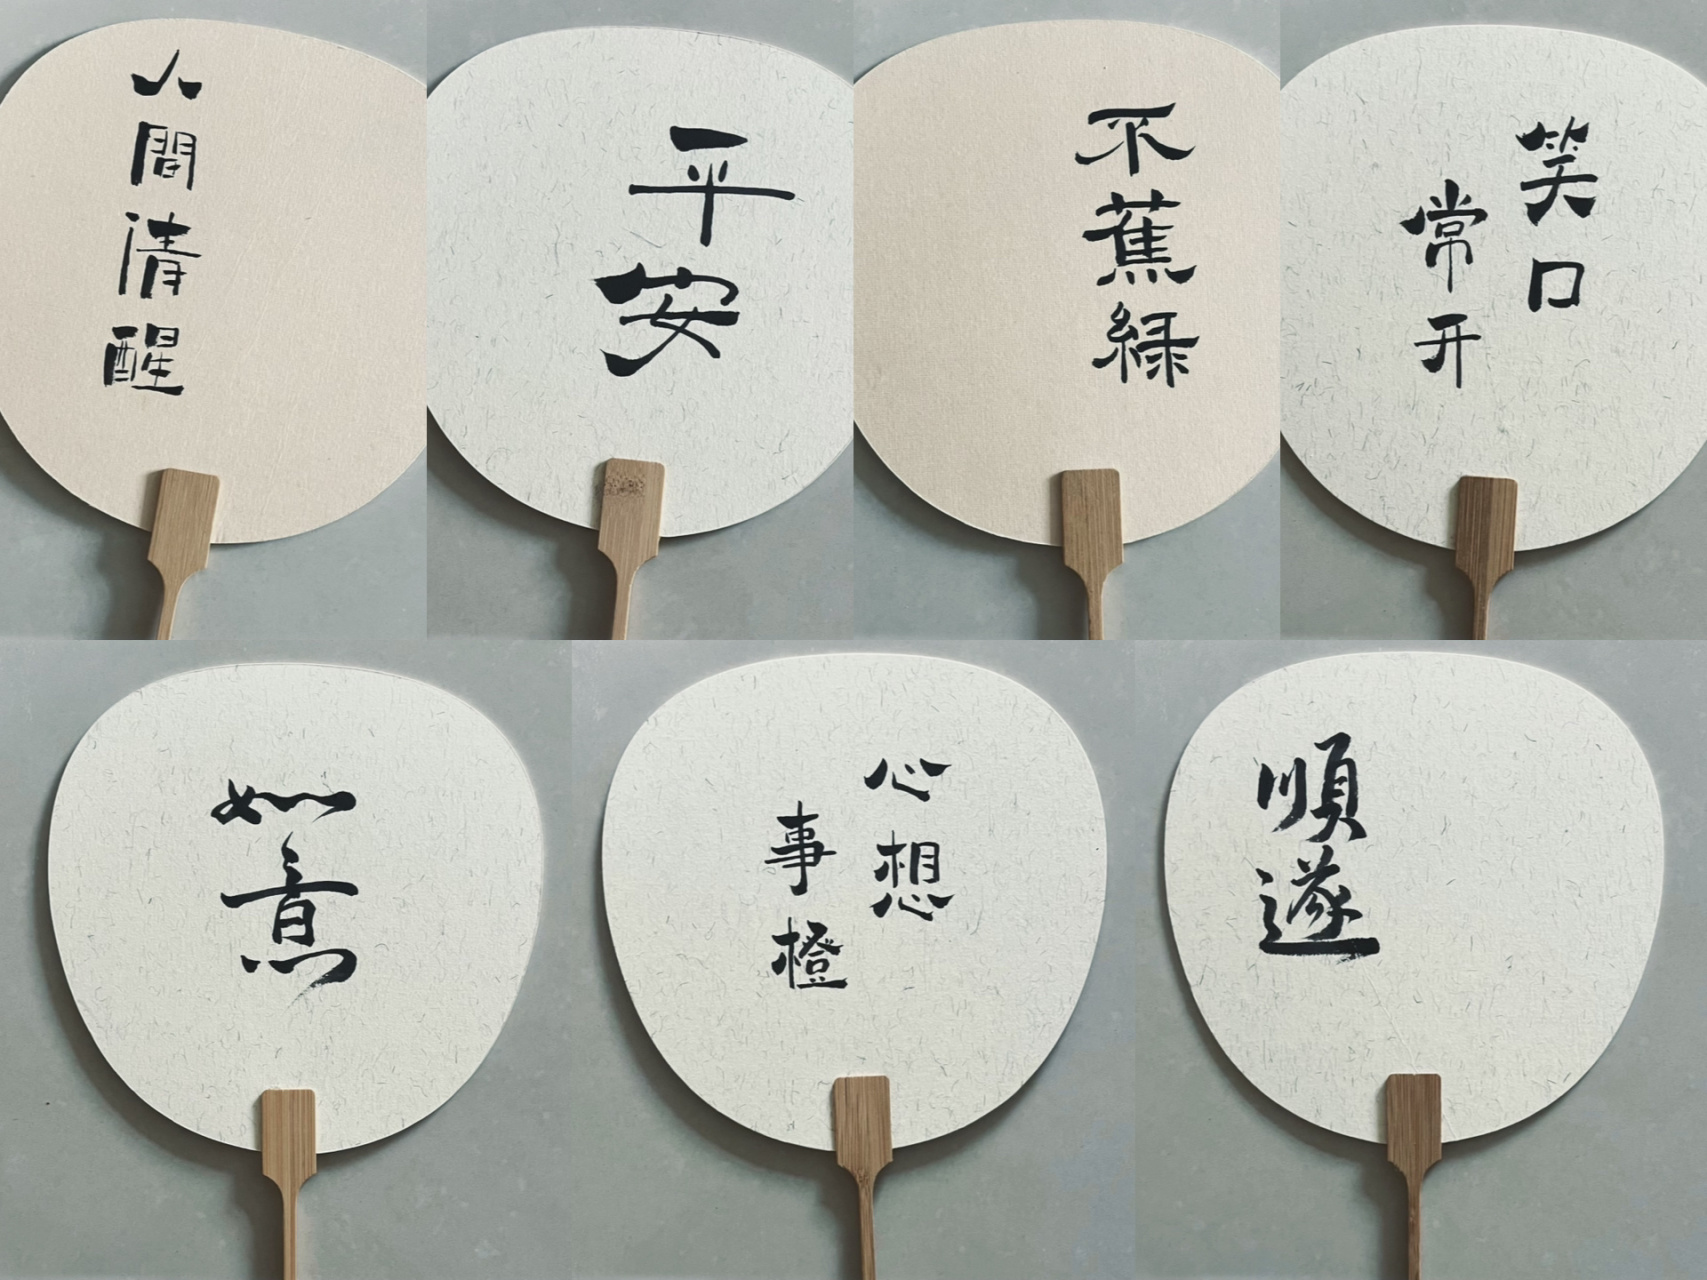 人間清醒
平安
不蕉綠
笑口
常开
如意
心想
事橙
順遂